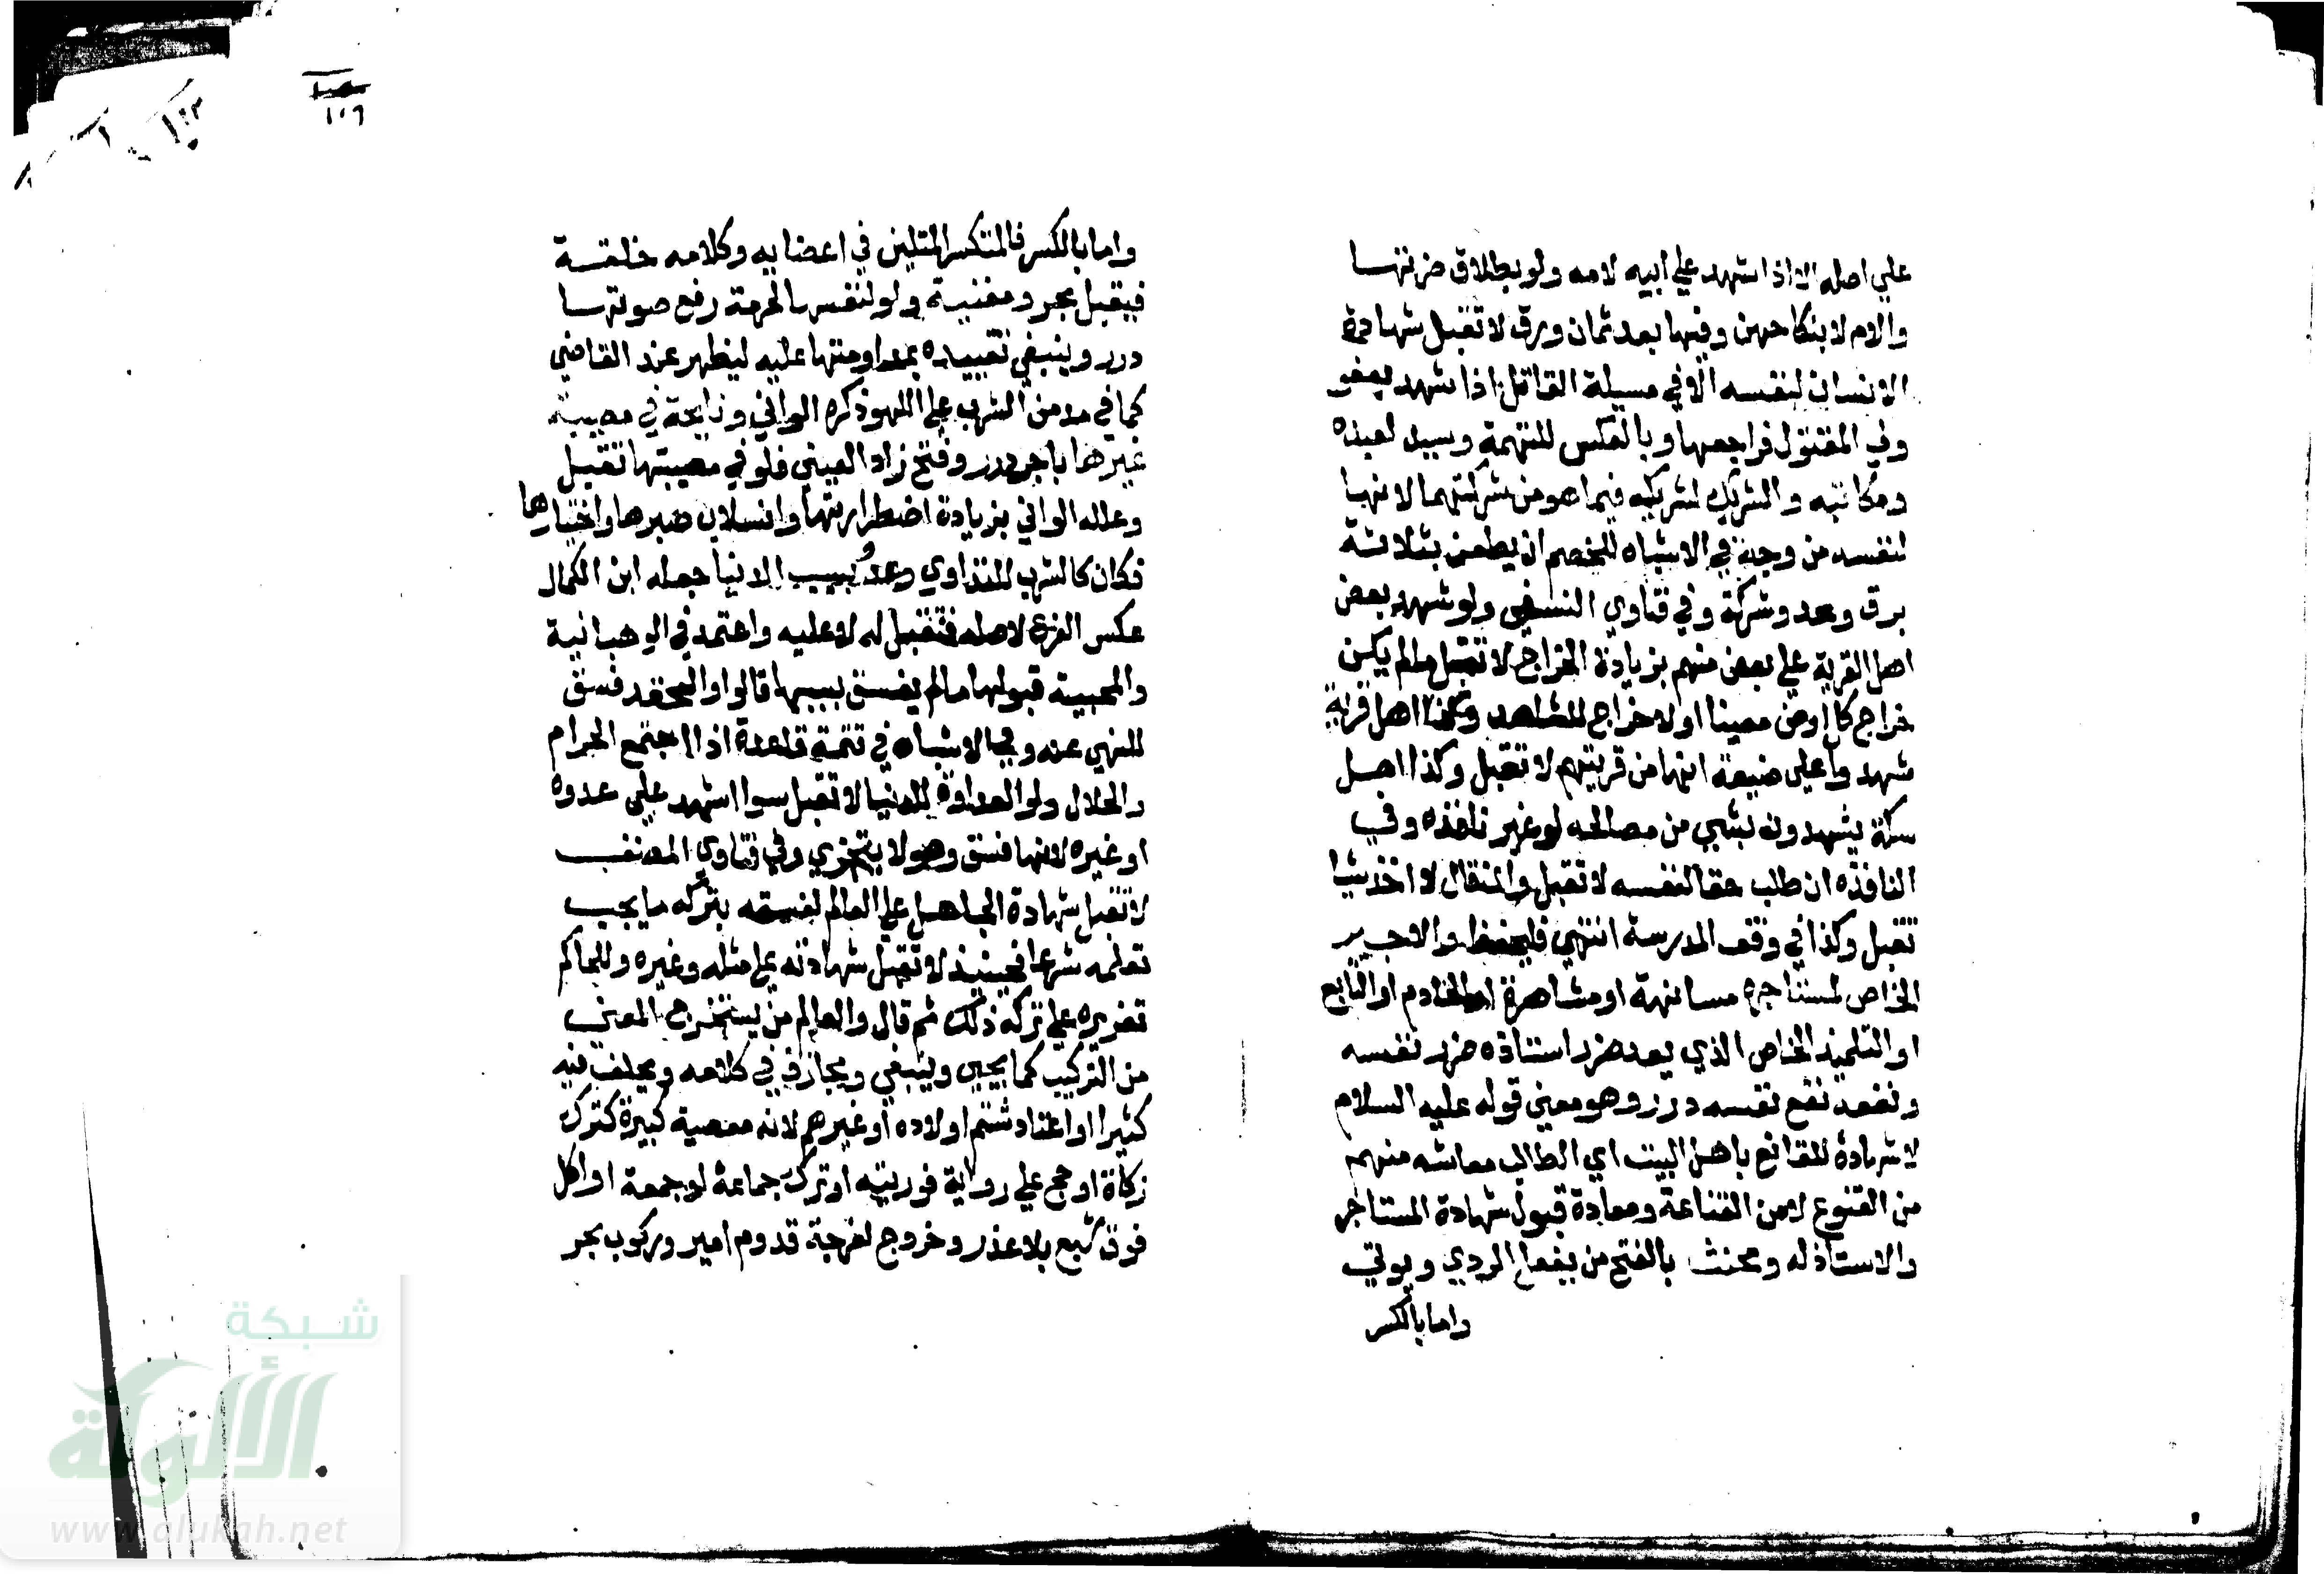 علي اصله الا اذا شهد علي ابيه لامه ولو بطلاق ضرتها
والام لا بنكاحهن وفيها بعد ثمان ورق لا تقبل شهادة
الانسان لنفسه الا في مسيلة القاتل اذا شهد بعفو
ولي المقتول فراجعها وبالعكس للتهمة وسيد لعبده
ومكاتبه والشريك لشريكه فيما هو من شركتهما لانها
لنفسه من وجه في الاشباه للخصم ان يطعن بثلاثة
برق وحد وشركة وفي فتاوي النسفي ولو شهد بعض
اهل القرية علي بعض منهم بزيادة الخراج لا تقبل مالم يكن
خراج كل ارض معينا او لا خراج للشاهد وكذا اهل قرية
شهدوا علي ضيعة انها من قريتهم لا تقبل وكذا اهل
سكة يشهدون بشي من مصالحه لو غير نافذه وفي
النافذه ان طلب حقا لنفسه لا تقبل وان قال لا اخذ شيا
تقبل وكذا في وقف المدرسة انتهي فليحفظ والاجير
الخاص لمستاجره مسانهة او مشاهرة او الخادم او التابع
او التلميذ الخاص الذي يعد ضرر استاذه ضرر نفسه
ونفعه نفع نفسه درر وهو معني قوله عليه السلام
لا شهادة للقانع باهل البيت اي الطالب معاشه منهم
من القنوع لا من القناعة ومفاده قبول شهادة المستاجر
والاستاذ له ومخنث بالفتح من يفعل الردي ويوتي
واما بالكسر
واما بالكسر فالمتكسر المتلين في اعضايه وكلامه خلقة
فيقبل بحر ومغنية ولو لنفسها لحرمة رفع صوتها
درر وينبغي تقييده بمداومتها عليه ليظهر عند القاضي
كما في مدمن الشرب علي اللهو ذكره الواني ونايحة في مصيبة
غيرها باجر درر وفتح زاد العيني فلو في مصيبتها تقبل
وعلله الواني بزيادة اضطرارها وانسلاب صبرها واختيارها
فكان كالشرب للتداوي وعدو بسبب الدنيا جعله ابن الكمال
عكس الفرع لاصله فتقبل له لا عليه واعتمد في الوهبانية
والمحبية قبولها مالم يفسق بسببها قالوا والحقد فسق
للنهي عنه وفي الاشباه في تتمة قاعدة اذا اجتمع الحرام
والحلال ولو العداوة للدنيا لا تقبل سوا شهد علي عدوه
او غيره لانها فسق وهو لا يتجزي وفي فتاوي المصنف
لا تقبل شهادة الجاهل علي العالم لفسقه بتركه ما يجب
تعلمه شرعا فحينيذ لا تقبل شهادته علي مثله وغيره وللحاكم
تعزيره علي تركه ذلك ثم قال والعالم من يستخرج المعني
من التركيب كما يحق وينبغي ومجازف في كلامه ويحلف فيه
كثيرا او اعتاد شتم اولاده او غيرهم لانه معصية كبيرة كترك
زكاة او حج علي رواية فوريته او ترك جماعة او جمعة او اكل
فوق شبع بلا عذر وخروج لفرجة قدوم امير وركوب بحر
شبكة
الألوكة
www.alukah.net